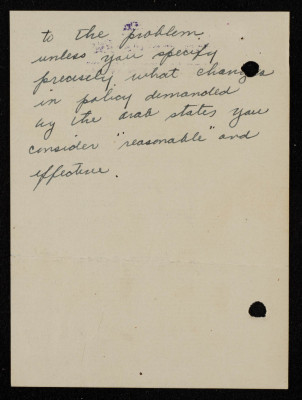 to the problem
unless you specify
precisely what changes
in policy demanded
by the arab states you
consider "reasonable" and
effective.